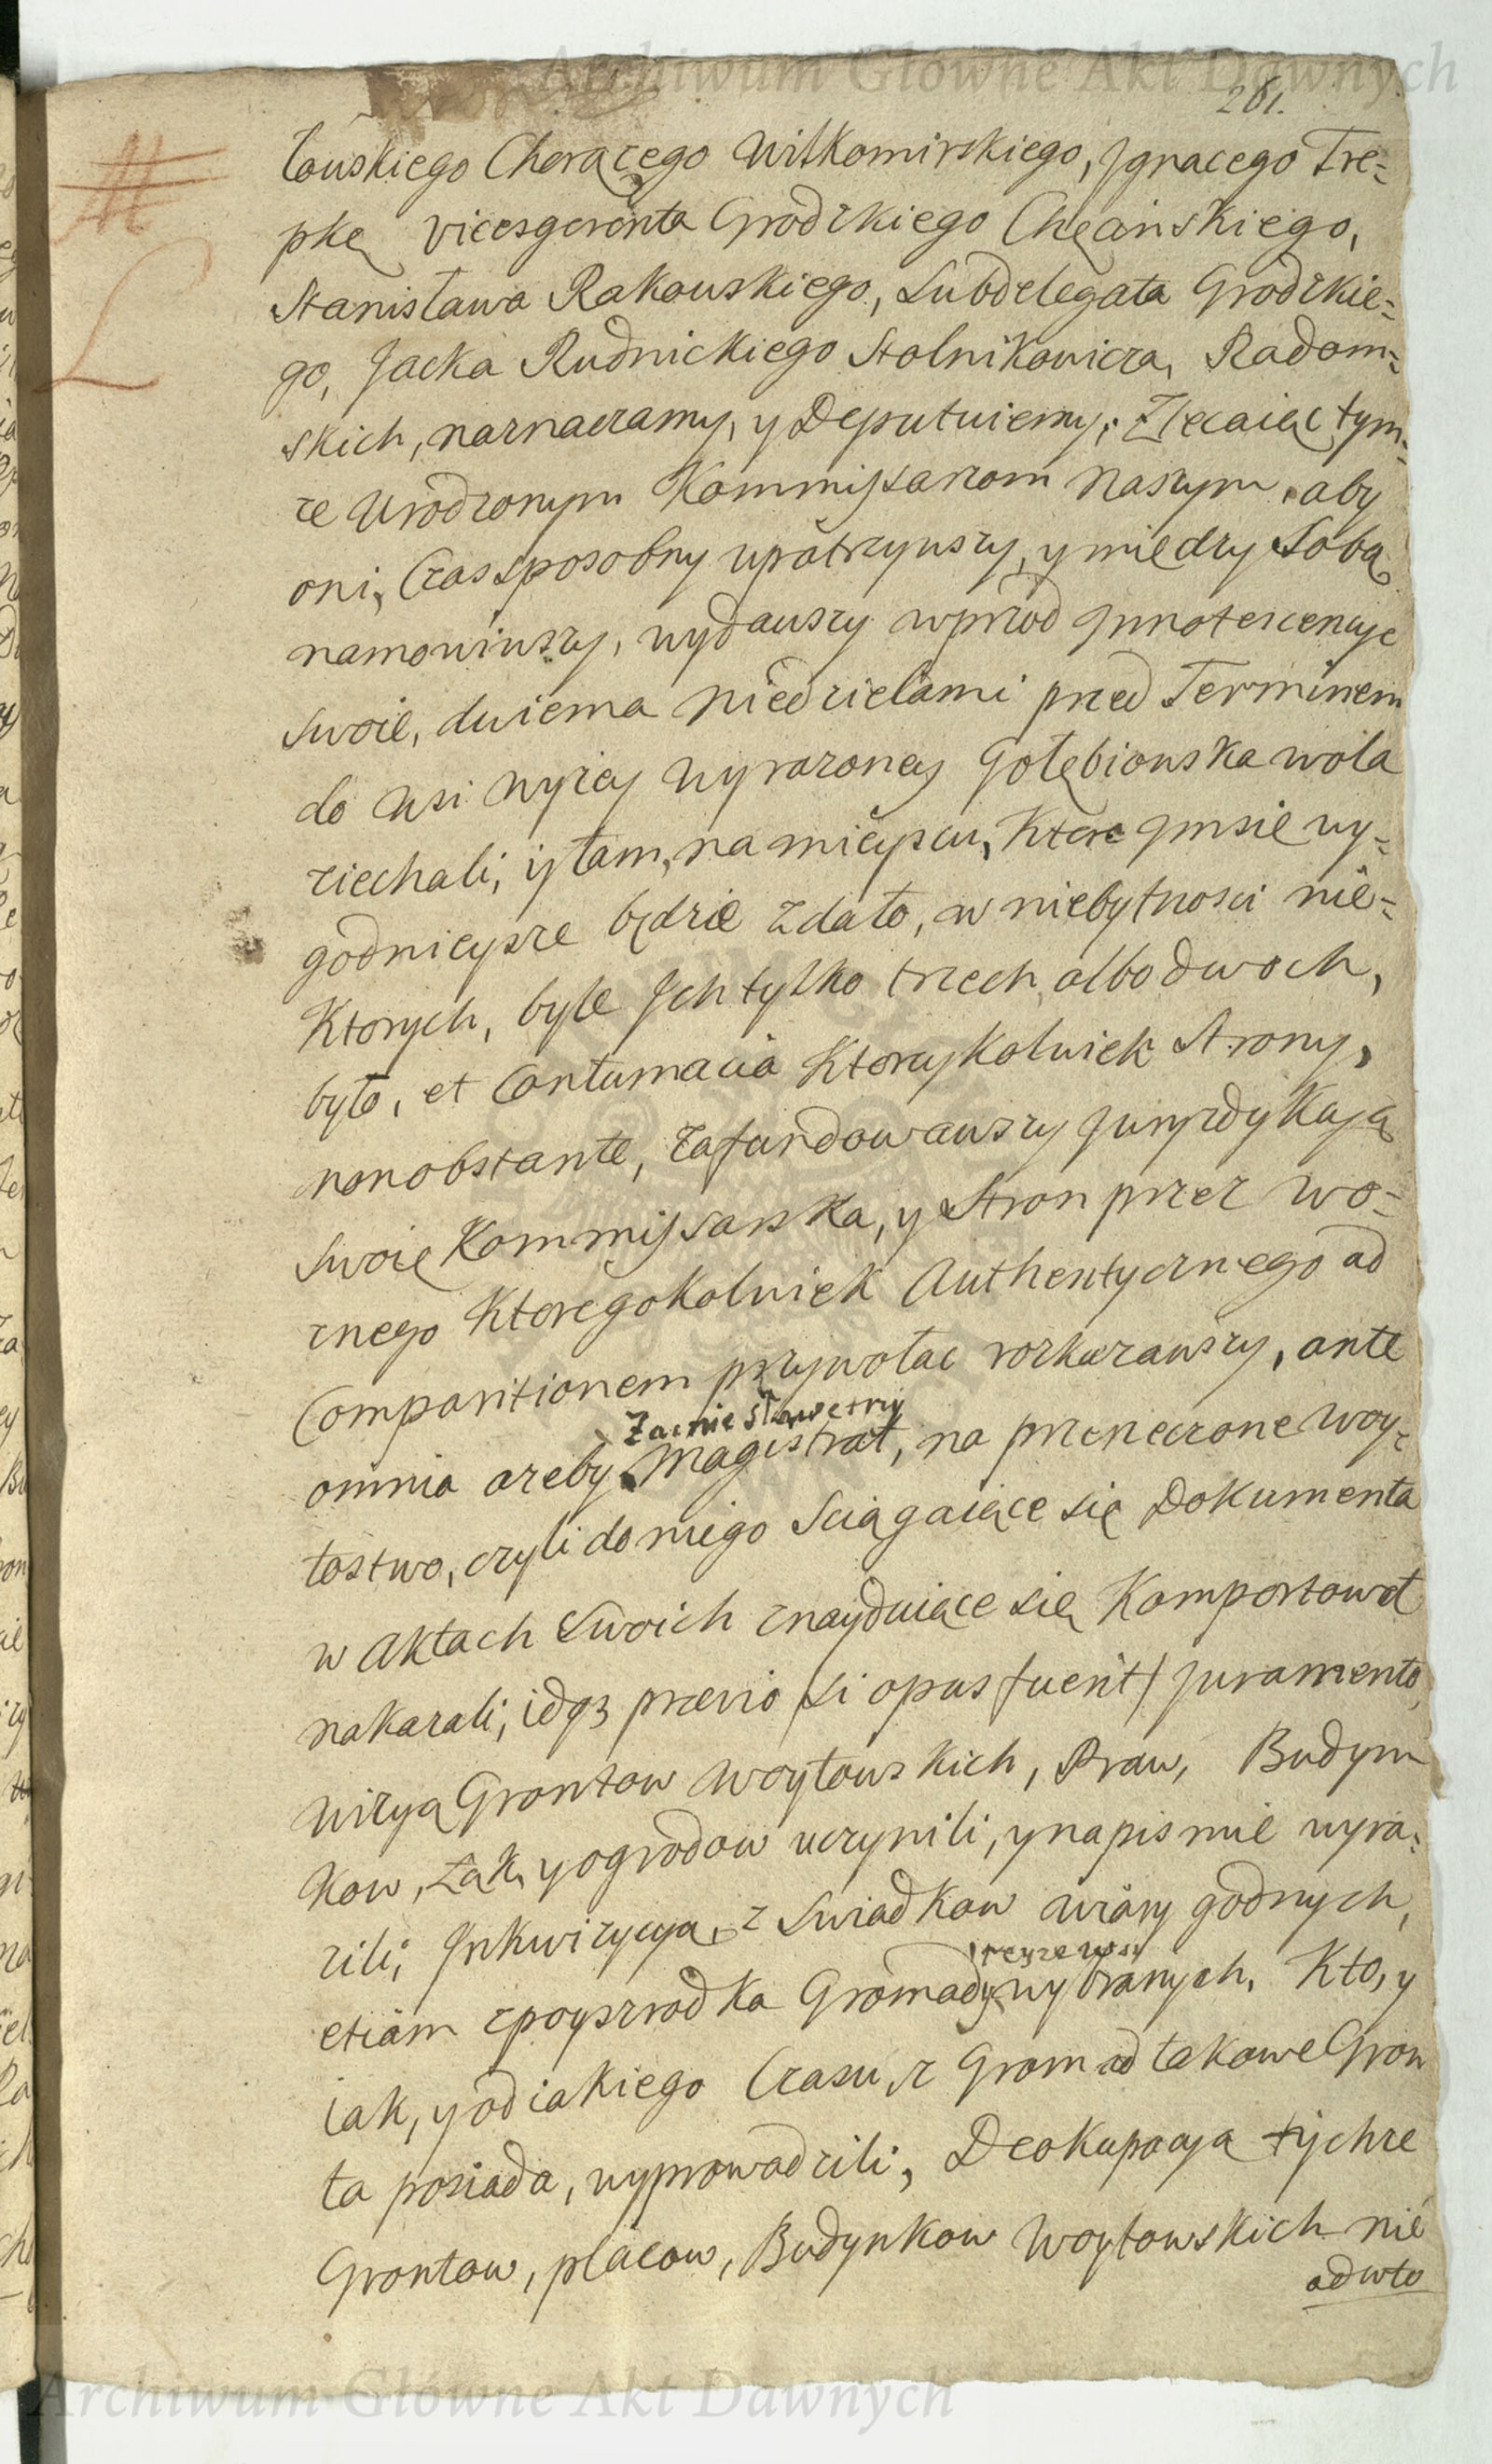 Archiwum Główne Akt Dawnych
261.
łowskiego Chorążego Wiłkomirskiego, Jgnacego Tre-
pkę vicesgerenta Grodzkiego Chęcińskiego,
Stanisława Rakowskiego, Subdelegata Grodzkie-
go, Jacka Rudnickiego Stolnikowicza, Radom-
skich, naznaczamy, y Deputuiemy; Zlecaiąc tym-
że Urodzonym Kommissarzom naszym, aby
oni, Czas sposobny upatrzywszy, y między Sobą
namowiwszy, wydawszy wprzod Jnnotescencye
swoie, dwiema Niedzielami przed Terminem
do wsi wyżey wyrażoney Gołębiowska wola
ziechali, y tam, na mieyscu, ktore Jm sie wy-
godnieysze będzie zdało, w niebytnosci nie-
ktorych, byle Jch tylko trzech albo dwoch,
było, et Contumacia ktoreykolwiek Strony,
non obstante, zafundowawszy Juryzdykcyą
swoię Kommissarską, y Stron przez Wo-
znego ktoregokolwiek Authentycznego ad
Comparitionem przywołac rozkazawszy, ante
Zacnie Sławetny
omnia azeby Magistrat, na przeneczone Woy-
tostwo, czyli do niego Sciągaiące się Dokumenta
w Aktach Swoich znayduiące się Komportował
nakazali, idqз praevio /si opus fuerit/ Juramento,
Wizyą Grontow Woytowskich, Praw, Budyn
kow, tak, y ogrodow uczynili, y na pismie wyra-
zili; Jnkwizycyą, z Swiadkow wiary godnych,
teyze wsi
etiam zpoyszrodka Gromady wybranych, Kto, y
iak, y od iakiego Czasu, z Gromad takowe Gron
ta posiada, wyprowadzili, Deokupacya tychże
Grontow, placow, Budynkow Woytowskich nie
odwło
Archiwum Główne Akt Dawnych